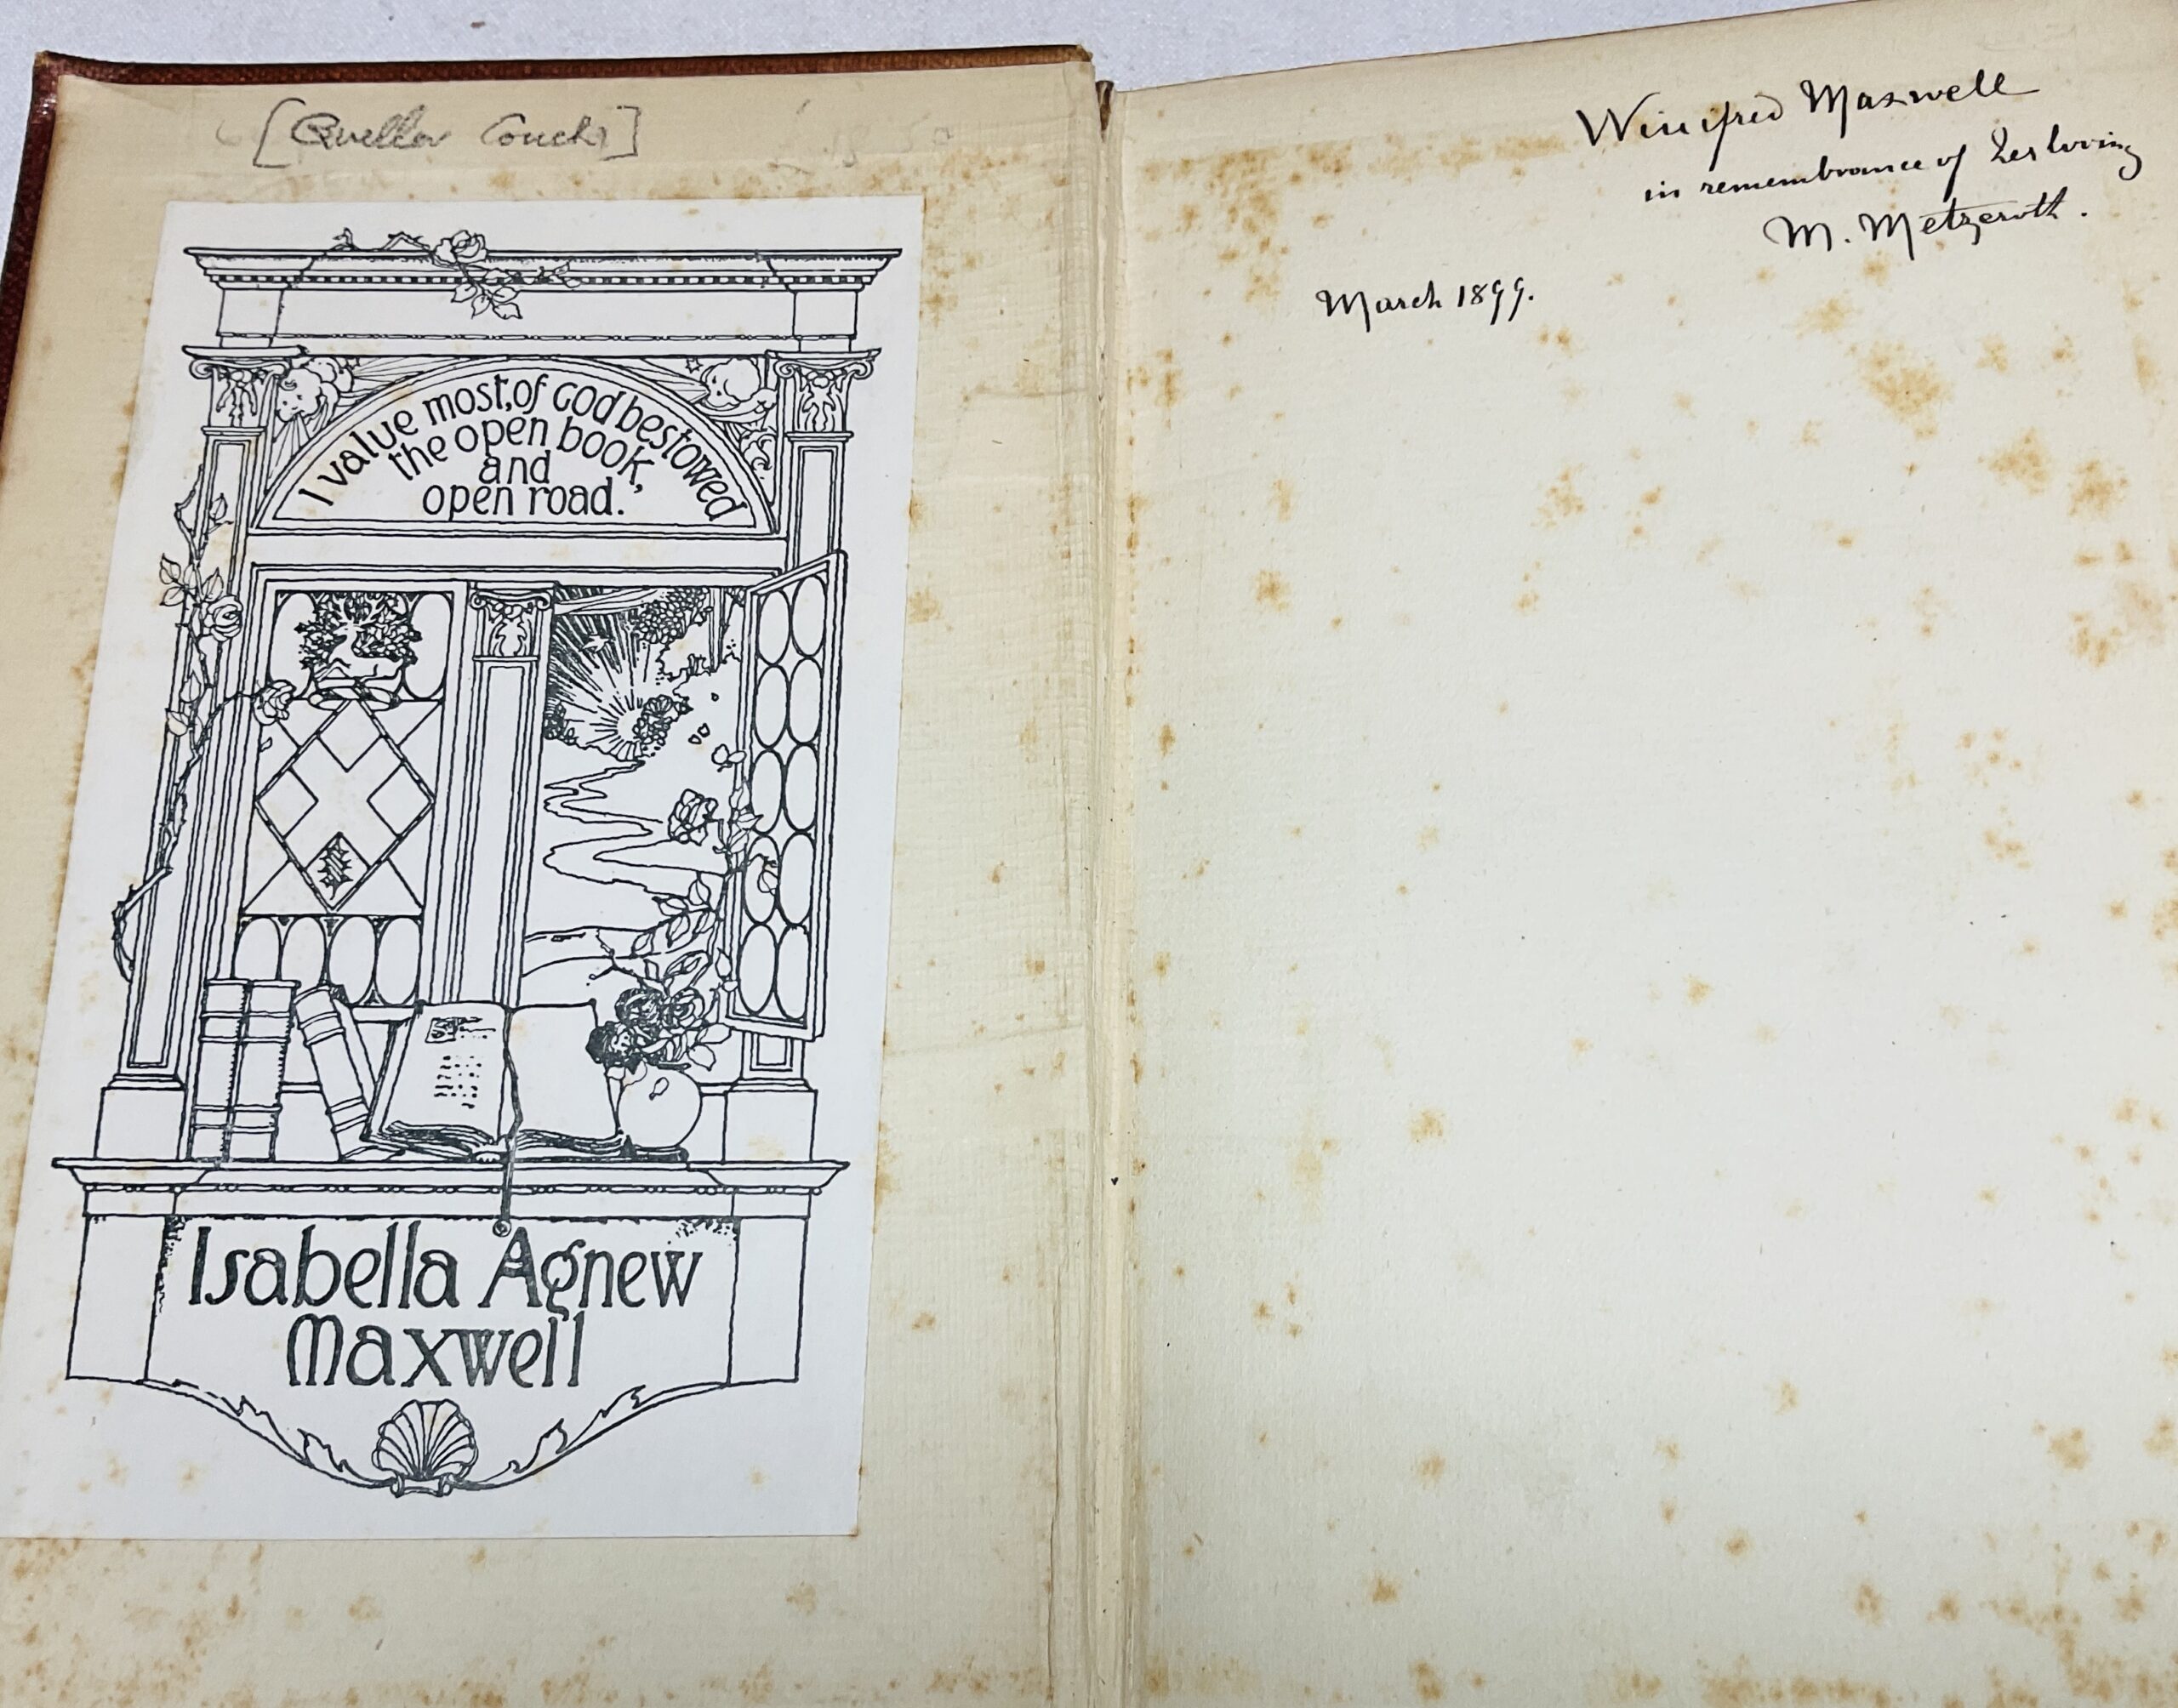 [Quiller Couch]
I value most, of God bestowed
the open book,
and
open road.
Isabella Agnew
Maxwell
Winifred Maxwell
in remembrance of her loving
M. Metzeroth.
March 1899.